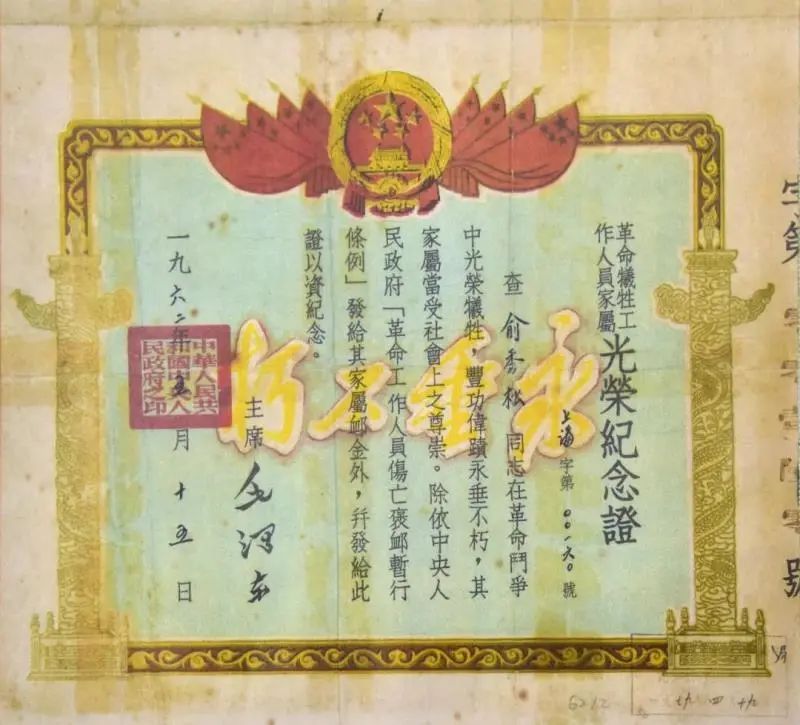 字第零零壹陸零號
革命犧牲工
作人員家屬
光榮紀念證
上海字第〇〇一六〇號
查俞秀松同志在革命鬥爭
中光榮犧牲，豐功偉蹟永垂不朽，其
家屬當受社會上之尊崇。除依中央人
民政府「革命工作人員傷亡褒卹暫行
條例」發給其家屬卹金外，幷發給此
證以資紀念。
主席 毛澤東
一九六二年五月十五日
中華人民共
和國中央人
民政府之印
永垂不朽
6212